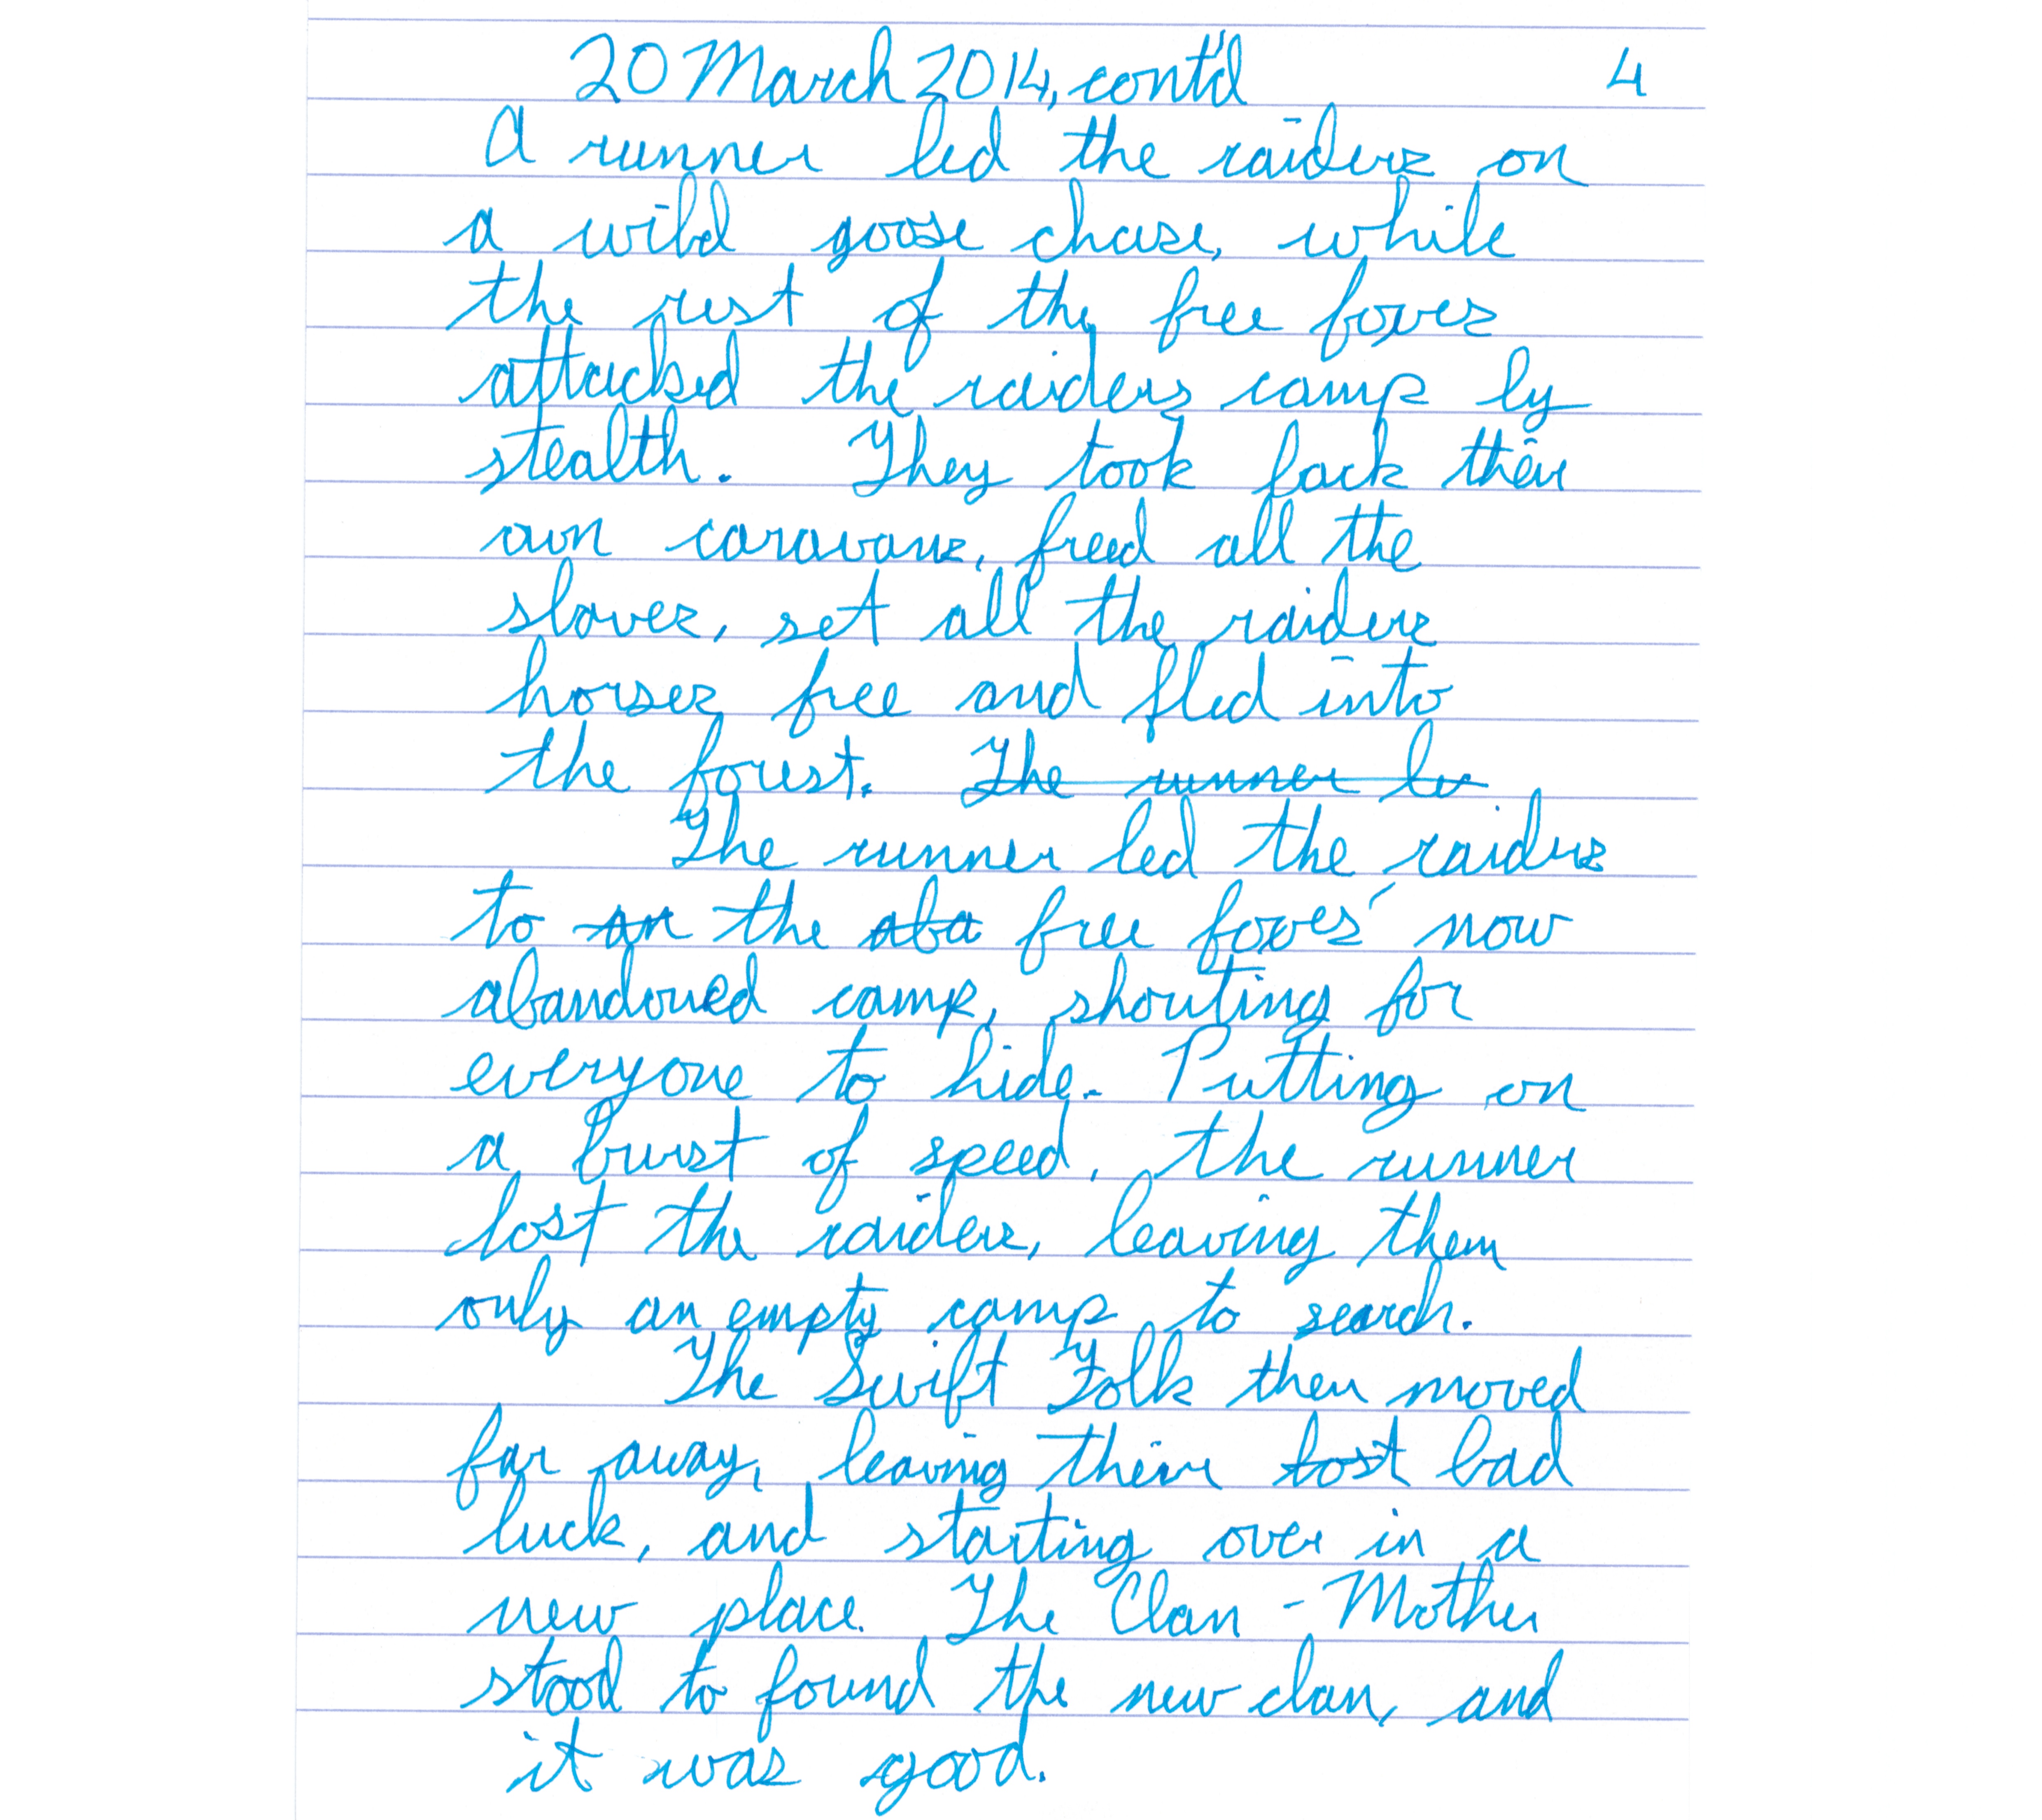 20 March 2014, cont'd 4
A runner led the raiders on
a wild goose chase, while
the rest of the free foxes
attacked the raiders camp by
stealth. They took back their
own caravans, freed all the
slaves, set all the raiders
horses free and fled into
the forest. The runner le
The runner led the raiders
to an the aba free foxes' now
abandoned camp, shouting for
everyone to hide. Putting on
a burst of speed, the runner
lost the raiders, leaving them
only an empty camp to search.
The Swift Folk then moved
far away, leaving their lost bad
luck, and starting over in a
new place. The Clan-Mother
stood to found the new clan, and
it was good.